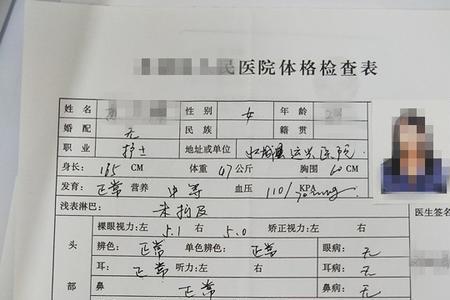 民医院体格检查表
姓名 性别 女 年龄
婚配 无 民族 籍贯
职业 护士 地址或单位 医院
身长: 165 CM 体重 47 公斤 胸围 CM
发育: 正常 营养 中等 血压 110/ KPA
浅表淋巴: 未扪及 医生签名
裸眼视力:左 5.1 右 5.0 矫正视力:左 右
头 辨色: 正常 单色辨色: 正常 眼病: 无
耳: 正常 听力:左 右 耳病: 无
部 鼻 正常 鼻病: 无